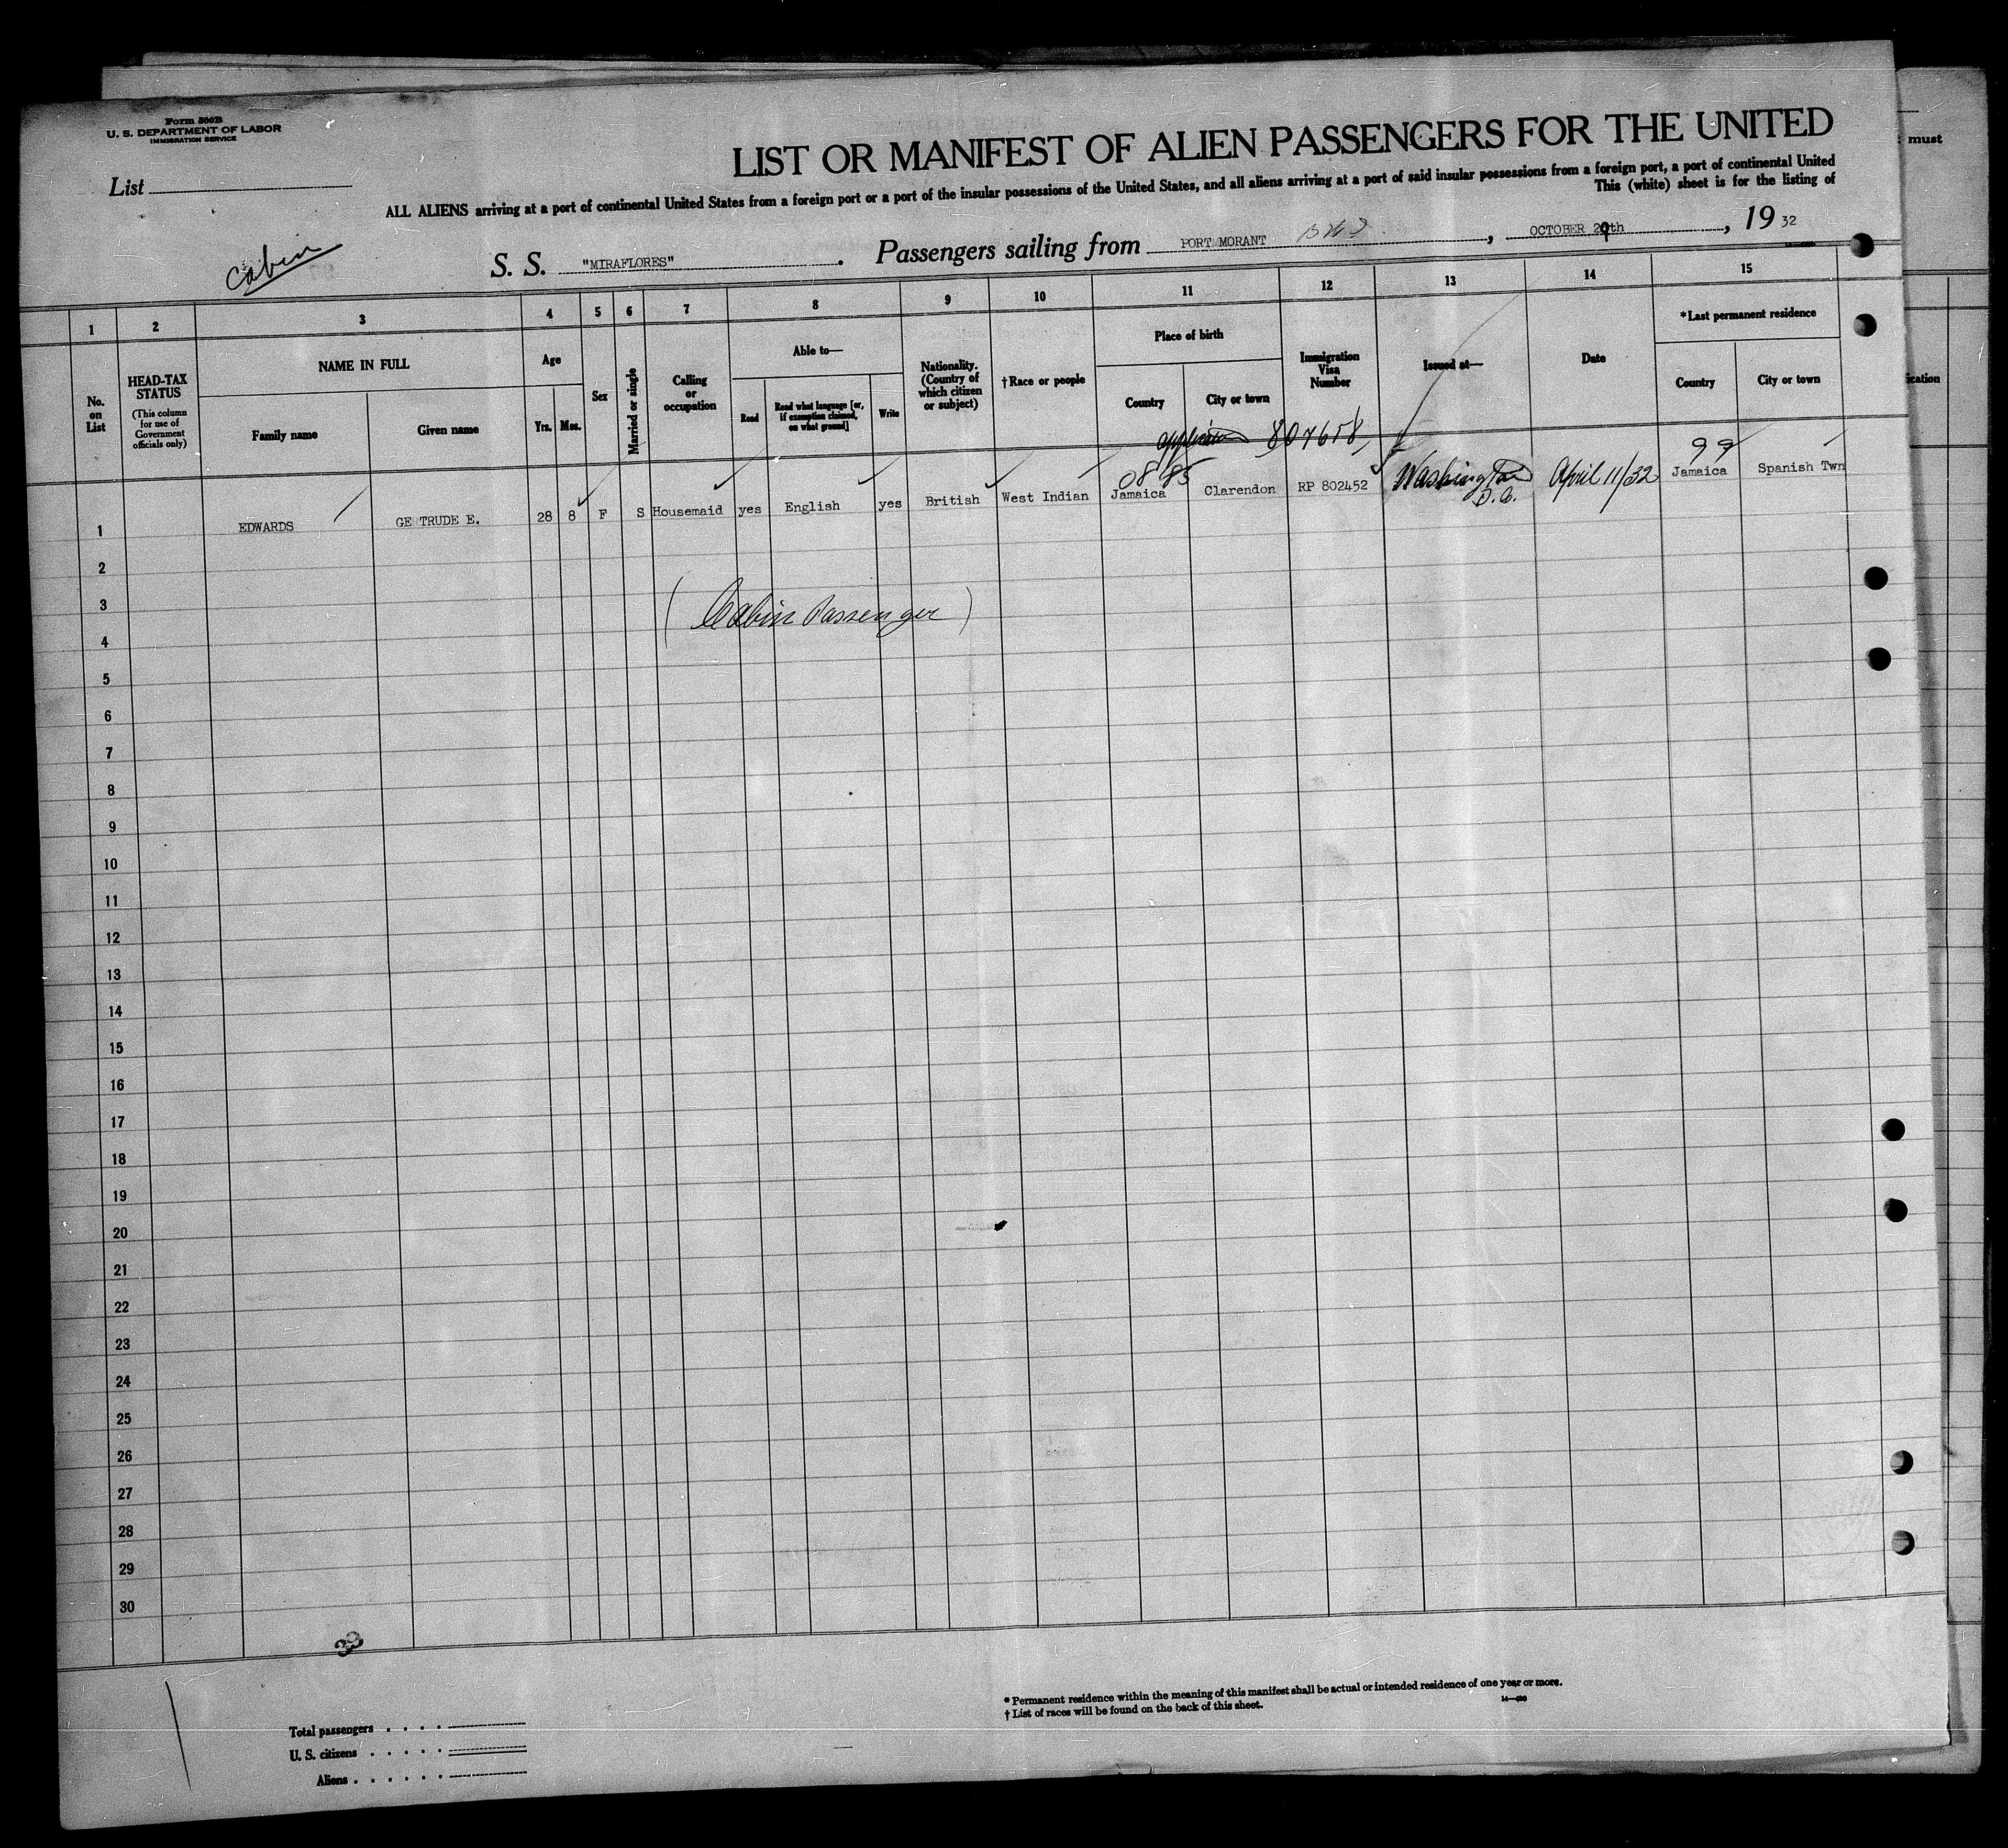 Form 500B
U. S. DEPARTMENT OF LABOR
IMMIGRATION SERVICE
List
LIST OR MANIFEST OF ALIEN PASSENGERS FOR THE UNITED
ALL ALIENS arriving at a port of continental United States from a foreign port or a port of the insular possessions of the United States, and all aliens arriving at a port of said insular possessions from a foreign port, a port of continental United
This (white) sheet is for the listing of
must
Cabin
S. S. "MIRAFLORES". Passengers sailing from PORT MORANT, OCTOBER 29th, 19 32
1 2 3 4 5 6 7 8 9 10 11 12 13 14 15
No. on List
HEAD-TAX STATUS
(This column for use of Government officials only)
NAME IN FULL
Family name
Given name
Age
Yrs. Mos.
Sex
Married or single
Calling or occupation
Able to—
Read
Read what language [or, if exemption claimed, on what ground]
Write
Nationality. (Country of which citizen or subject)
† Race or people
Place of birth
Country
City or town
Immigration Visa Number
Issued at—
Date
*Last permanent residence
Country
City or town
ication
application 807658
08 85
99
1 EDWARDS GE TRUDE E. 28 8 F S Housemaid yes English yes British West Indian Jamaica Clarendon RP 802452 Washington D.C. April 11/32 Jamaica Spanish Twn
2
3
(Cabin Passenger)
4
5
6
7
8
9
10
11
12
13
14
15
16
17
18
19
20
21
22
23
24
25
26
27
28
29
30
Total passengers . . . .
U. S. citizens . . . . .
Aliens . . . . . .
* Permanent residence within the meaning of this manifest shall be actual or intended residence of one year or more.
† List of races will be found on the back of this sheet.